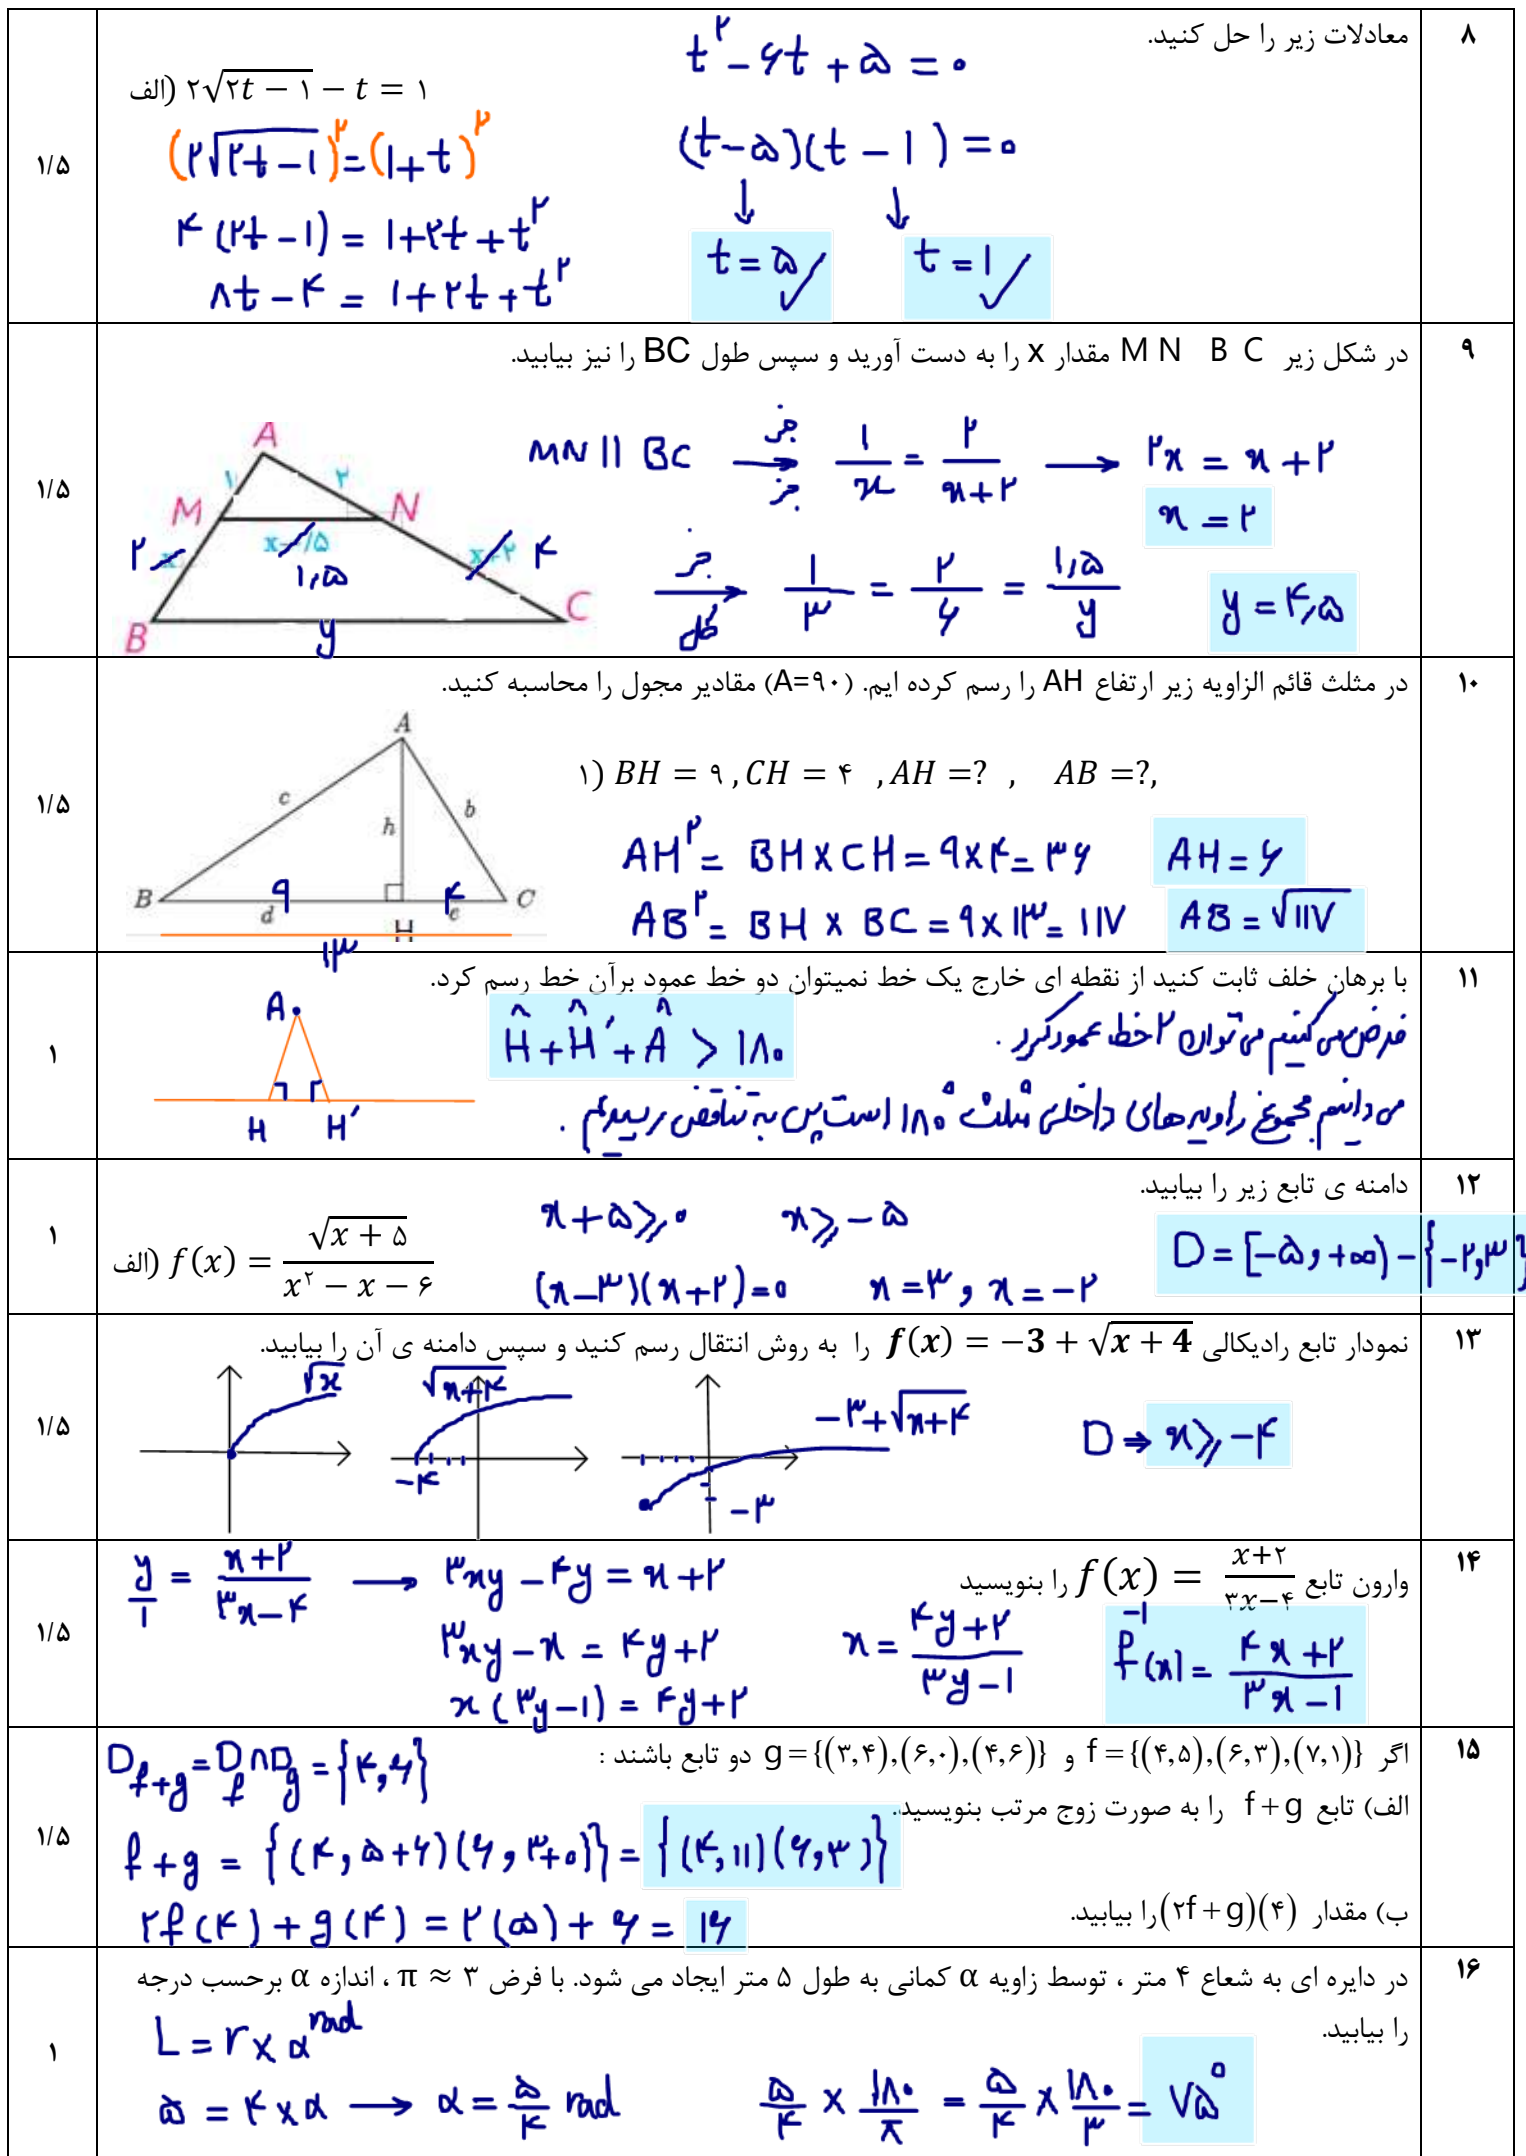 ۸
معادلات زیر را حل کنید.
الف) ۲√۲t − ۱ − t = ۱
(۲√۲t − ۱)^۲ = (۱ + t)^۲
۴(۲t − ۱) = ۱ + ۲t + t^۲
۸t − ۴ = ۱ + ۲t + t^۲
t^۲ − ۶t + ۵ = ۰
(t − ۵)(t − ۱) = ۰
↓ ↓
t = ۵ ✓ t = ۱ ✓
۱/۵
۹
در شکل زیر M N B C مقدار x را به دست آورید و سپس طول BC را نیز بیابید.
A
۱ ۲
M N
۲ x ۱,۵ x+۲ ۴
B y C
MN || BC جز/جز → ۱/x = ۲/x+۲ → ۲x = x + ۲
x = ۲
جز/کل → ۱/۳ = ۲/۶ = ۱,۵/y y = ۴,۵
۱/۵
۱۰
در مثلث قائم الزاویه زیر ارتفاع AH را رسم کرده ایم. (A=۹۰) مقادیر مجول را محاسبه کنید.
A
c h b
B ۹ d H ۴ e C
۱۳
۱) BH = ۹ , CH = ۴ , AH =? , AB =?,
AH^۲ = BH × CH = ۹ × ۴ = ۳۶ AH = ۶
AB^۲ = BH × BC = ۹ × ۱۳ = ۱۱۷ AB = √۱۱۷
۱/۵
۱۱
با برهان خلف ثابت کنید از نقطه ای خارج یک خط نمیتوان دو خط عمود برآن خط رسم کرد.
فرض می کنیم می توان ۲ خط عمود کرد.
Ĥ + Ĥ′ + Â > ۱۸۰
می دانیم مجموع زاویه های داخلی مثلث ۱۸۰° است پس به تناقض رسیدیم.
A
H H′
۱
۱۲
دامنه ی تابع زیر را بیابید.
الف) f(x) = √x + ۵ / x^۲ − x − ۶
x + ۵ ⩾ ۰ x ⩾ −۵
(x − ۳)(x + ۲) = ۰ x = ۳ , x = −۲
D = [−۵, +∞) − {−۲,۳}
۱
۱۳
نمودار تابع رادیکالی f(x) = −3 + √x + 4 را به روش انتقال رسم کنید و سپس دامنه ی آن را بیابید.
√x √x+۴ −۳+√x+۴
−۴ −۳
D ⇒ x ⩾ −۴
۱/۵
۱۴
وارون تابع f(x) = x+۲/۳x−۴ را بنویسید
y/۱ = x+۲/۳x−۴ → ۳xy − ۴y = x + ۲
۳xy − x = ۴y + ۲
x(۳y − ۱) = ۴y + ۲
x = ۴y+۲/۳y−۱
f^−۱(x) = ۴x+۲/۳x−۱
۱/۵
۱۵
اگر f = {(۴,۵),(۶,۳),(۷,۱)} و g = {(۳,۴),(۶,۰),(۴,۶)} دو تابع باشند :
الف) تابع f+g را به صورت زوج مرتب بنویسید.
D_f+g = D_f ∩ D_g = {۴,۶}
f + g = {(۴, ۵+۶)(۶, ۳+۰)} = {(۴,۱۱)(۶,۳)}
ب) مقدار (۲f+g)(۴) را بیابید.
۲f(۴) + g(۴) = ۲(۵) + ۶ = ۱۶
۱/۵
۱۶
در دایره ای به شعاع ۴ متر ، توسط زاویه α کمانی به طول ۵ متر ایجاد می شود. با فرض π ≈ ۳ ، اندازه α برحسب درجه
را بیابید.
L = r × α^rad
۵ = ۴ × α → α = ۵/۴ rad
۵/۴ × ۱۸۰/π = ۵/۴ × ۱۸۰/۳ = ۷۵°
۱